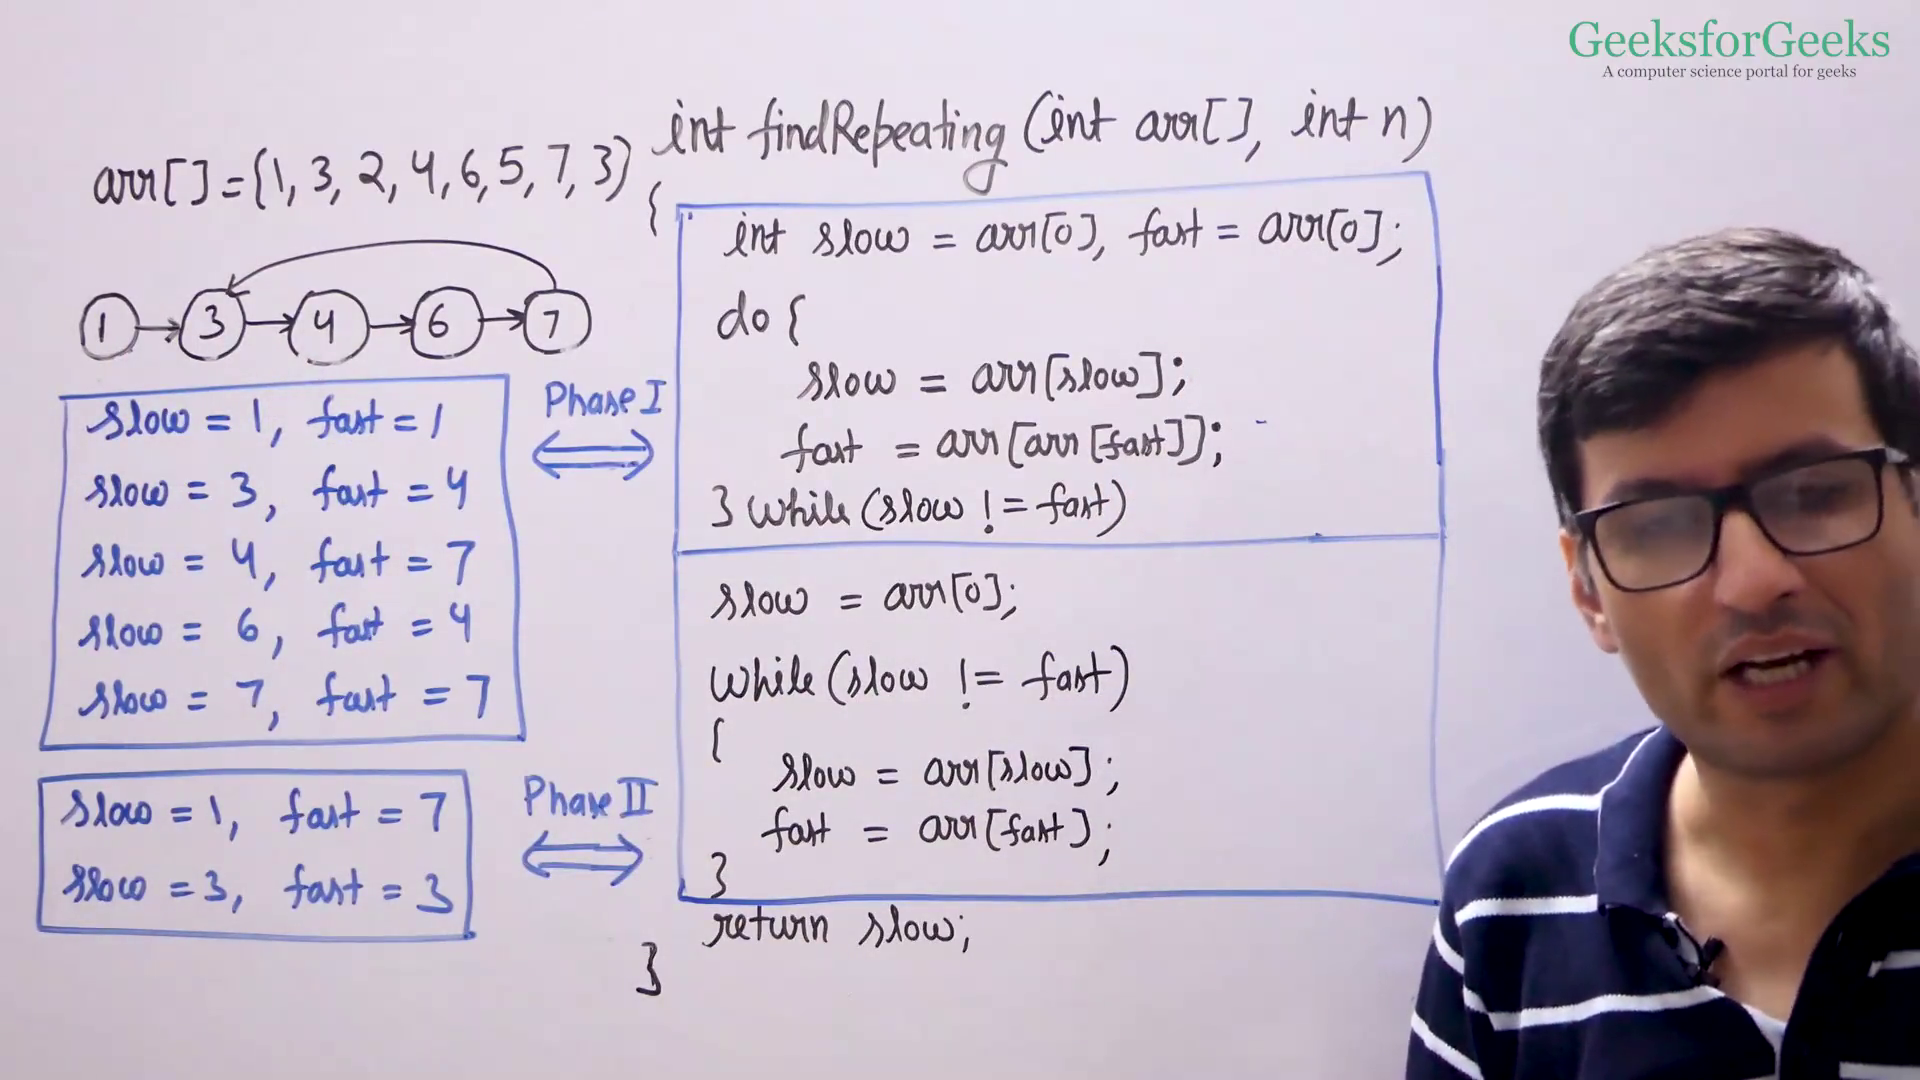 GeeksforGeeks
A computer science portal for geeks
arr[] = {1, 3, 2, 4, 6, 5, 7, 3}
1 3 4 6 7
slow = 1, fast = 1
slow = 3, fast = 4
slow = 4, fast = 7
slow = 6, fast = 4
slow = 7, fast = 7
Phase I
slow = 1, fast = 7
slow = 3, fast = 3
Phase II
int findRepeating (int arr[], int n)
{
int slow = arr[0], fast = arr[0];
do {
slow = arr[slow];
fast = arr[arr[fast]];
} while (slow != fast)
slow = arr[0];
while (slow != fast)
{
slow = arr[slow];
fast = arr[fast];
}
return slow;
}